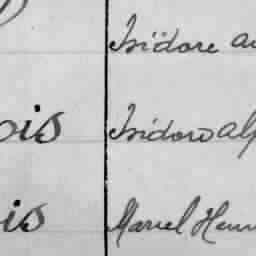 Isidore au
ois Isidore Alp
is Marcel Henri